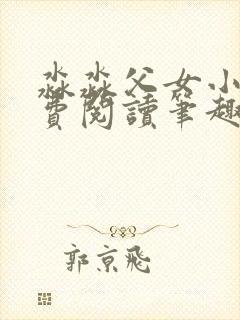 淼淼父女小
費閱讀筆趣
郭京飛